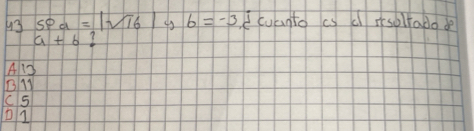 43 SP a = |√16| y b = -3, ¿ cuanto es el resultado de
a + b ?
A 13
B 11
C 5
D 1